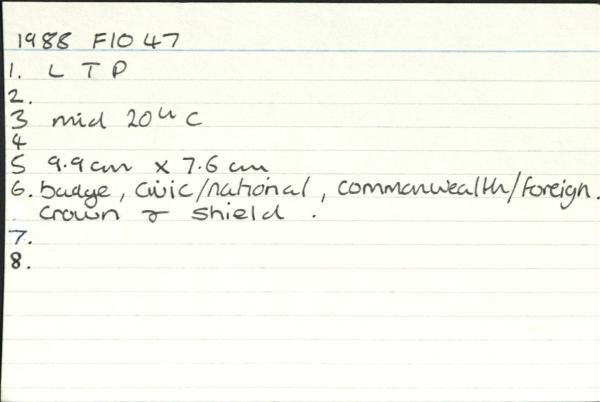 1988 F10 47
1. L T P
2.
3 mid 20th C
4
5 9.9cm x 7.6cm
6. badge, civic/national, commonwealth/foreign.
crown & shield.
7.
8.